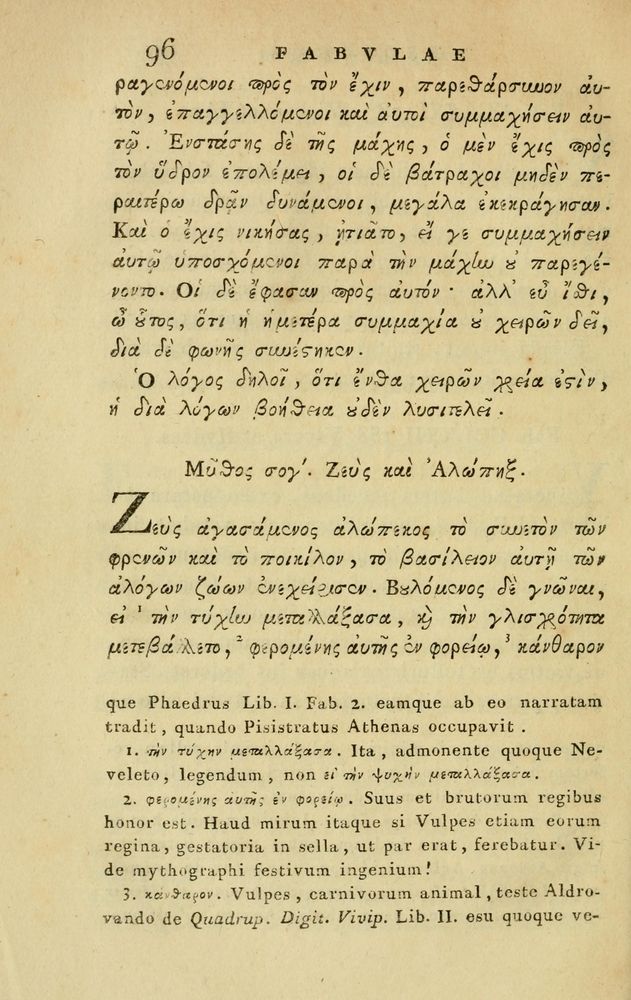 96 FABVLAE
ραγενόμενοι πρὸς τὸν ἔχιν, παρεθάρσυνον αὐ-
τὸν, ἐπαγγελλόμενοι καὶ αὐτοὶ συμμαχήσειν αὐ-
τῷ. Ἐνστάσης δὲ τῆς μάχης, ὁ μὲν ἔχις πρὸς
τὸν ὕδρον ἐπολέμει, οἱ δὲ βάτραχοι μηδὲν πε-
ραιτέρω δρᾷν δυνάμενοι, μεγάλα ἐκεκράγησαν.
Καὶ ὁ ἔχις νικήσας, ᾐτιᾶτο, εἴ γε συμμαχήσειν
αὐτῷ ὑποσχόμενοι παρὰ τὴν μάχην ȣ παρεγέ-
νοντο. Οἱ δὲ ἔφασαν πρὸς αὐτόν· ἀλλ' εὖ ἴθι,
ὦ ȣ̃τος, ὅτι ἡ ἡμετέρα συμμαχία ȣ χειρῶν δεῖ,
διὰ δὲ φωνῆς συνέϛηκεν.
Ὁ λόγος δηλοῖ, ὅτι ἔνθα χειρῶν χρεία ἐϛὶν,
ἡ διὰ λόγων βοήθεια ȣ̓δὲν λυσιτελεῖ.
Μῦθος σογ'. Ζεὺς καὶ Ἀλώπηξ.
Ζεὺς ἀγασάμενος ἀλώπεκος τὸ συνετὸν τῶν
φρενῶν καὶ τὸ ποικίλον, τὸ βασίλειον αὐτῇ τῶν
ἀλόγων ζώων ἐνεχείρισεν. Βȣλόμενος δὲ γνῶναι,
εἰ ¹ τὴν τύχην μεταλλάξασα, ϗ τὴν γλισχρότητα
μετεβάλλετο, ² φερομένης αὐτῆς ἐν φορείῳ, ³ κάνθαρον
que Phaedrus Lib. I. Fab. 2. eamque ab eo narratam
tradit, quando Pisistratus Athenas occupavit.
1. τὴν τύχην μεταλλάξασα. Ita, admonente quoque Ne-
veleto, legendum, non εἰ τὴν ψυχὴν μεταλλάξασα.
2. φερομένης αὐτῆς ἐν φορείῳ. Suus et brutorum regibus
honor est. Haud mirum itaque si Vulpes etiam eorum
regina, gestatoria in sella, ut par erat, ferebatur. Vi-
de mythographi festivum ingenium!
3. κάνθαρον. Vulpes, carnivorum animal, teste Aldro-
vando de Quadrup. Digit. Vivip. Lib. II. esu quoque ve-